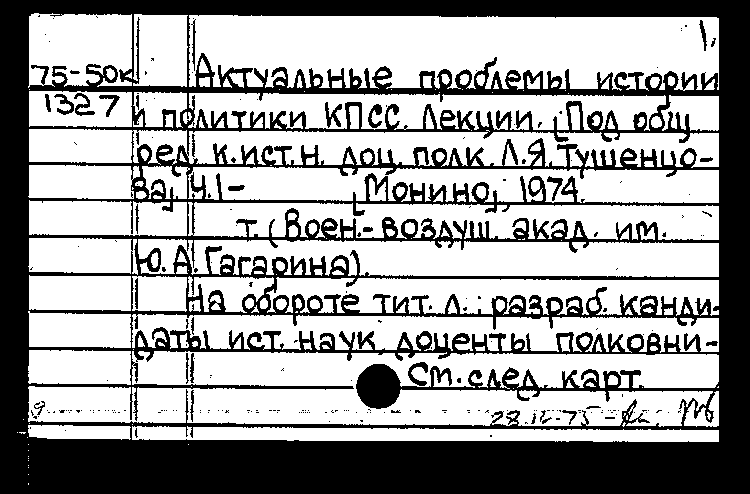 1.
75-50к Актуальные проблемы истории
1327 и политики КПСС. Лекции. [Под общ.
ред. к.ист.н. доц. полк. Л.Я.Тушенцо-
ва] Ч.1- [Монино], 1974.
т. (Воен.-воздуш. акад. им.
Ю.А.Гагарина).
На обороте тит. л.: разраб. канди-
даты ист. наук, доценты полковни-
См. след. карт.
9